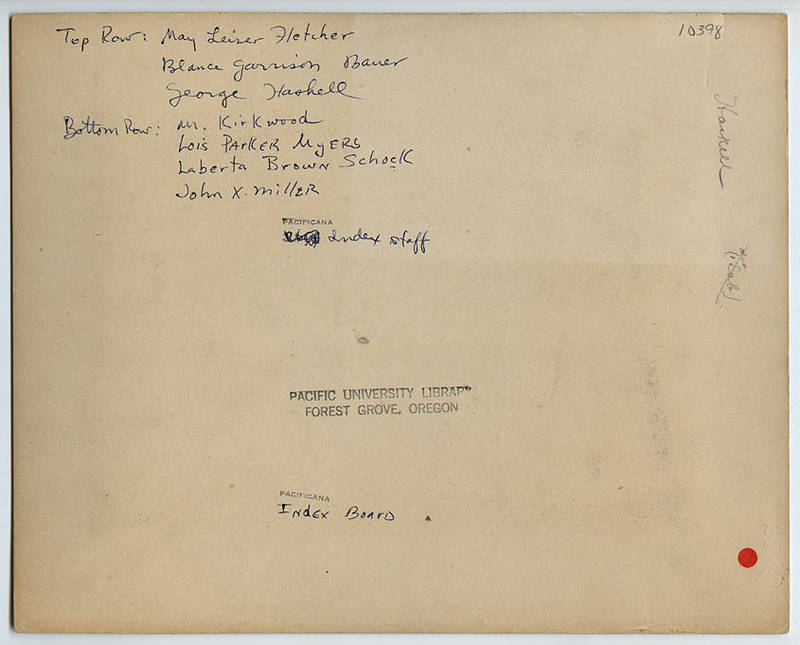 10398
Top Row: May Leiser Fletcher
Blance Garrison Bauer
George Haskell
Bottom Row: M. Kirkwood
Lois Parker Myers
Laberta Brown Schock
John X. Miller
Haskell
PACIFICANA
Index Staff
PACIFIC UNIVERSITY LIBRARY
FOREST GROVE, OREGON
PACIFICANA
Index Board